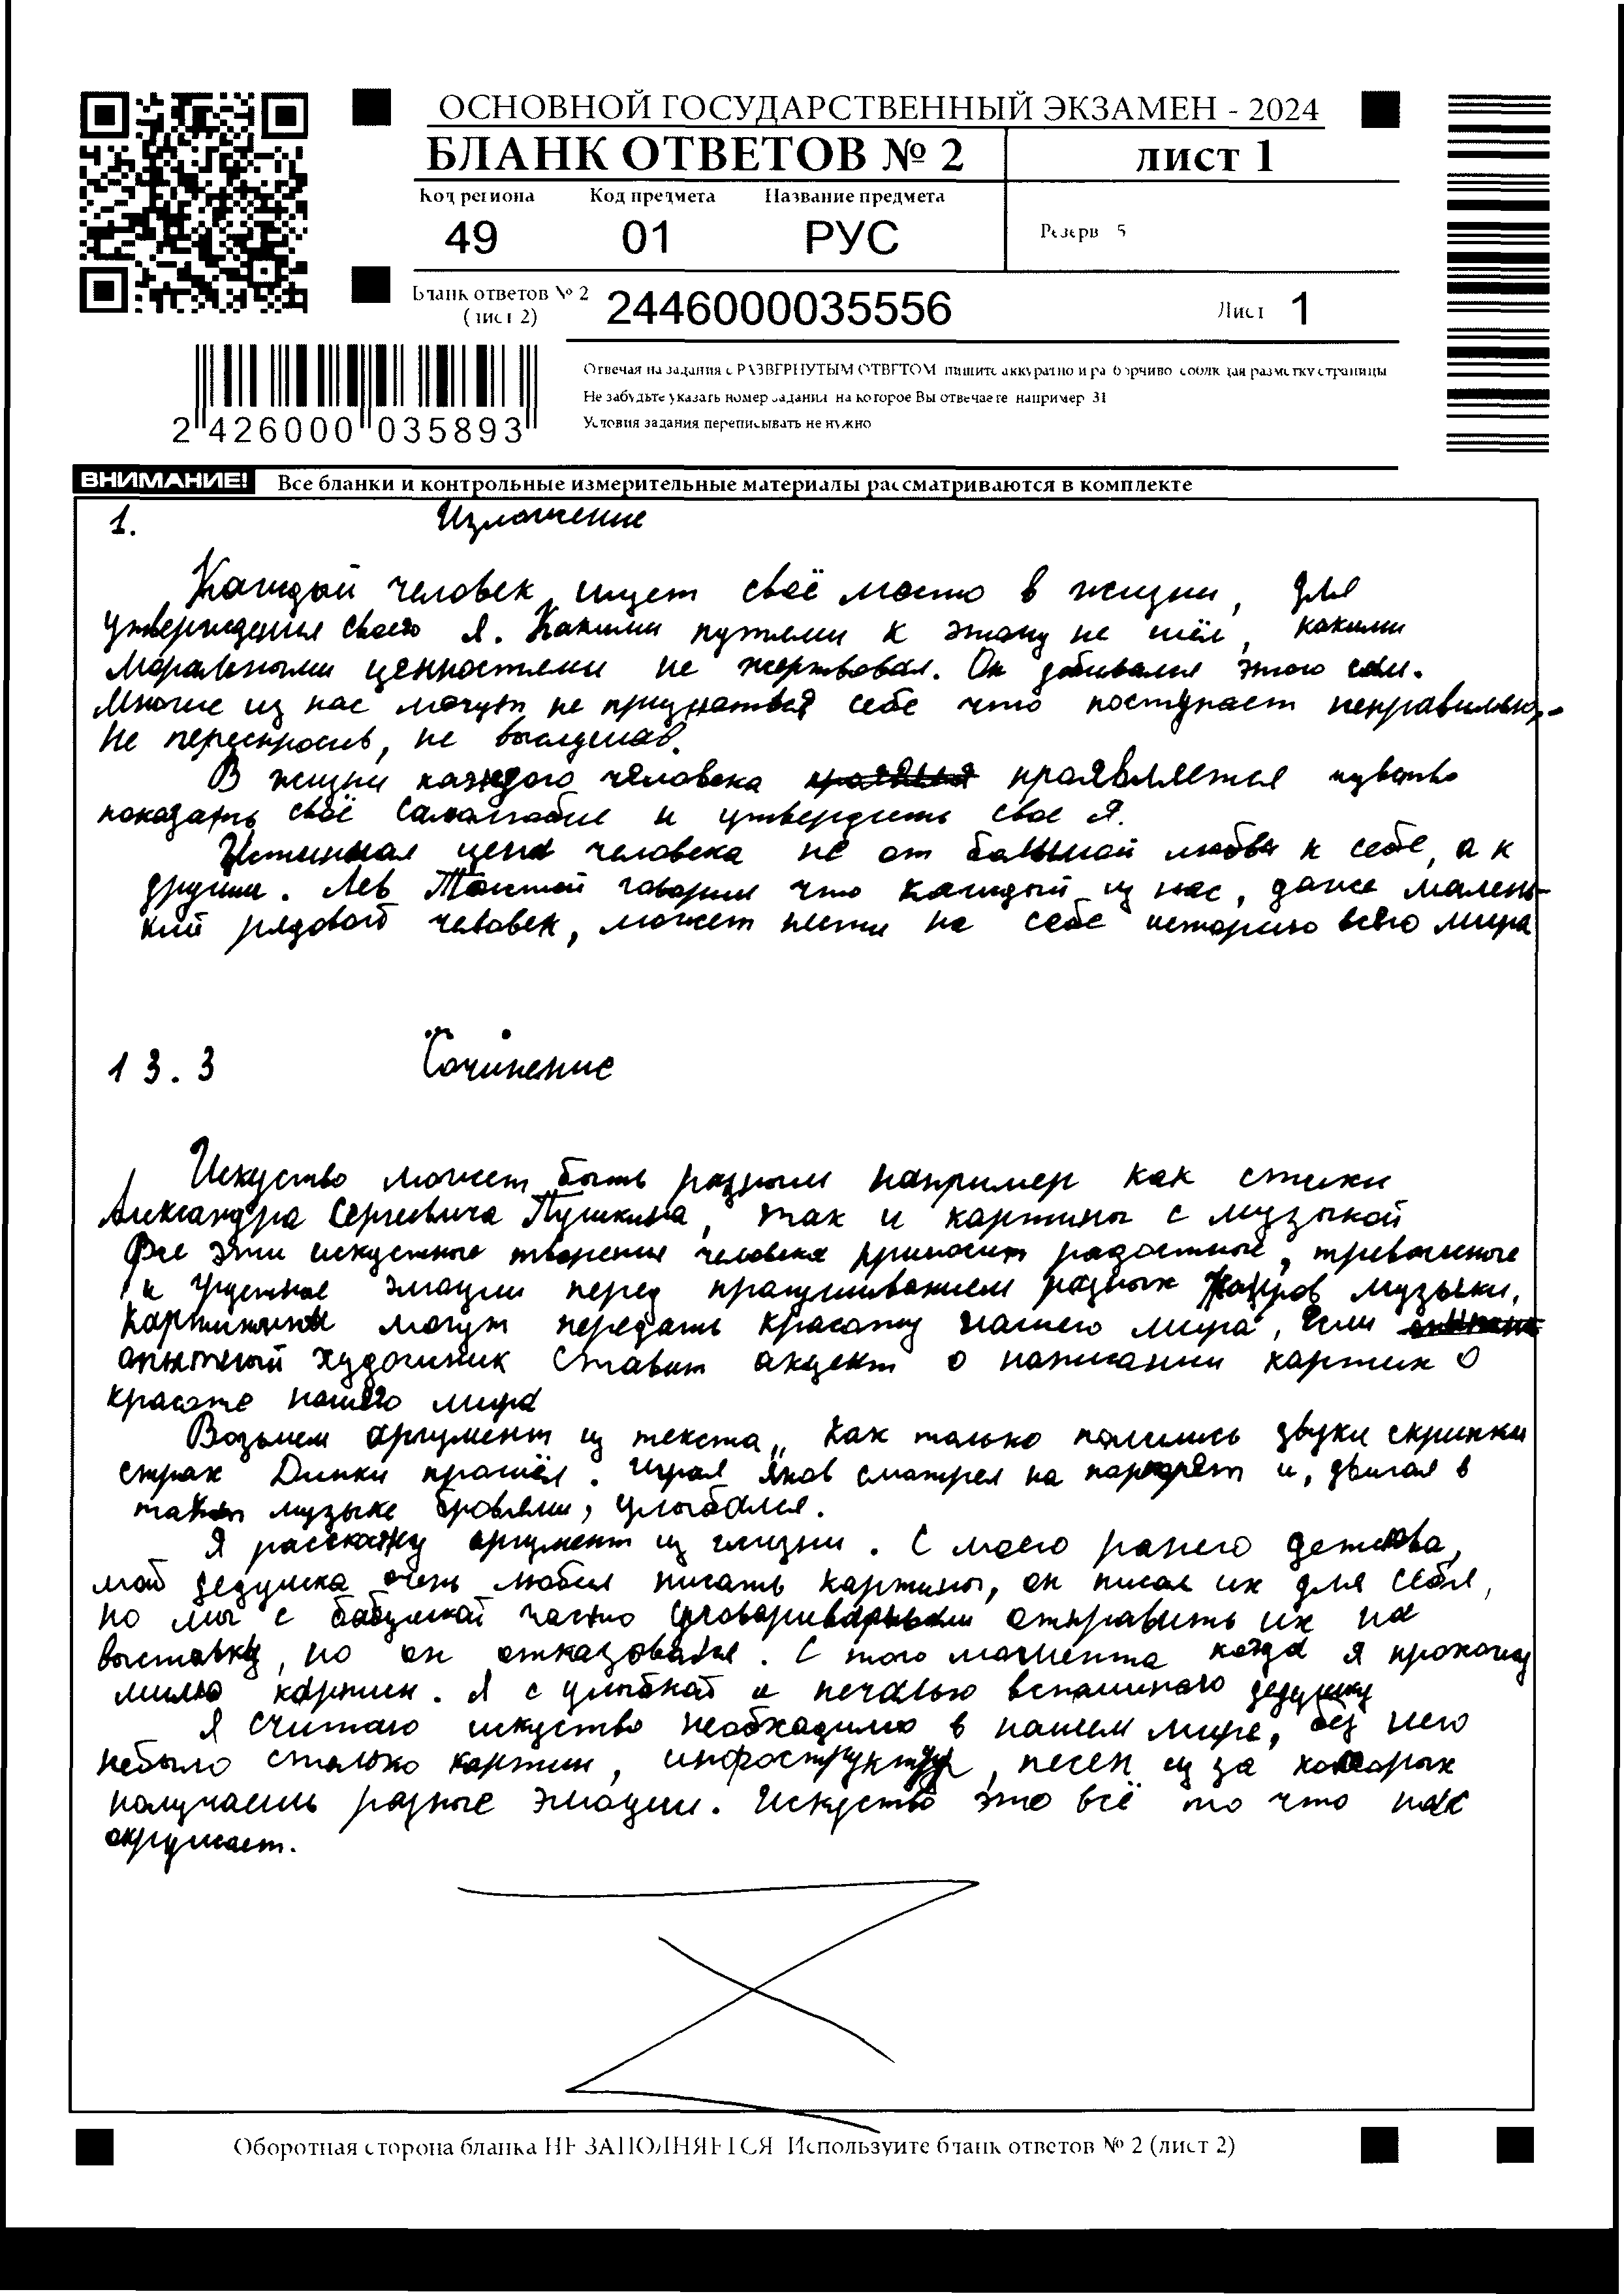 ОСНОВНОЙ ГОСУДАРСТВЕННЫЙ ЭКЗАМЕН - 2024
БЛАНК ОТВЕТОВ № 2
лист 1
Код региона Код предмета Название предмета
49 01 РУС
Резерв 5
Бланк ответов № 2
(лист 2)
2446000035556
Лист 1
2 426000 035893
Отвечая на задания с РАЗВЕРНУТЫМ ОТВЕТОМ пишите аккуратно и разборчиво соблюдая разметку страницы
Не забудьте указать номер задания на которое Вы отвечаете например 31
Условия задания переписывать не нужно
ВНИМАНИЕ! Все бланки и контрольные измерительные материалы рассматриваются в комплекте
1. Изложение
Каждый человек ищет своё место в жизни, для
утверждения своего Я. Какими путями к этому не шёл, какими
моральными ценностями не жертвовал. Он добивался этого сам.
Многие из нас могут не признаться себе что поступает неправильно,
Не переспросив, не выслушав.
В жизни каждого человека проявляется чувство
показать своё самолюбие и утвердить свое Я.
Истинная цена человека не от большой любви к себе, а к
другим. Лев Толстой говорил что каждый из нас, даже малень-
кий рядовой человек, может нести на себе историю всего мира
13.3 Сочинение
Искуство может быть разным например как стихи
Александра Сергеевича Пушкина, так и картины с музыкой
Все эти искустные творения человека приносит радостные, тревожные
и грустные эмоции перед прослушиванием разных жанров музыки,
Картины могут передать красоту нашего мира, если
опытный художник ставит акцент о написании картин о
красоте нашего мира
Возьмем аргумент из текста,, Как только полились звуки скрипки
страх Динки прошёл. Играл Яков смотрел на портрет и, двигая в
такт музыке бровями, улыбался.
Я расскажу аргумент из жизни. С моего ранего детства,
мой дедушка очень любил писать картины, он писал их для себя,
но мы с бабушкой часто уговаривали отправить их на
выставку, но он отказовался. С того момента когда я прохожу
мимо картин. Я с улыбкой и печалью вспоминаю дедушку
Я считаю искуство необходимо в нашем мире, без него
небыло столько картин, инфоструктур, песен из за которых
получаешь разные эмоции. Искуство это всё то что нас
окружает.
Оборотная сторона бланка НЕ ЗАПОЛНЯЕТСЯ Используйте бланк ответов № 2 (лист 2)